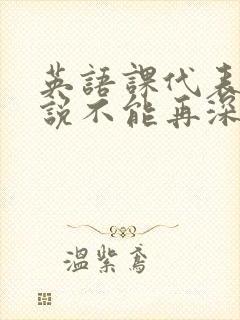 英語課代表
說不能再深
溫紫鳶